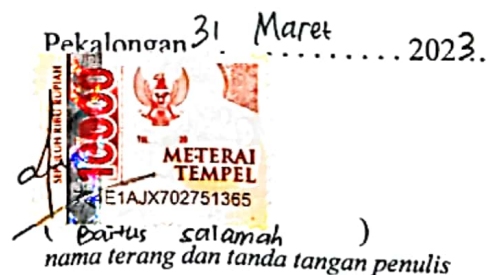 Pekalongan 31 Maret 2023.
SEPULUH RIBU RUPIAH
10000
METERAI
TEMPEL
E1AJX702751365
( Baitus salamah )
nama terang dan tanda tangan penulis